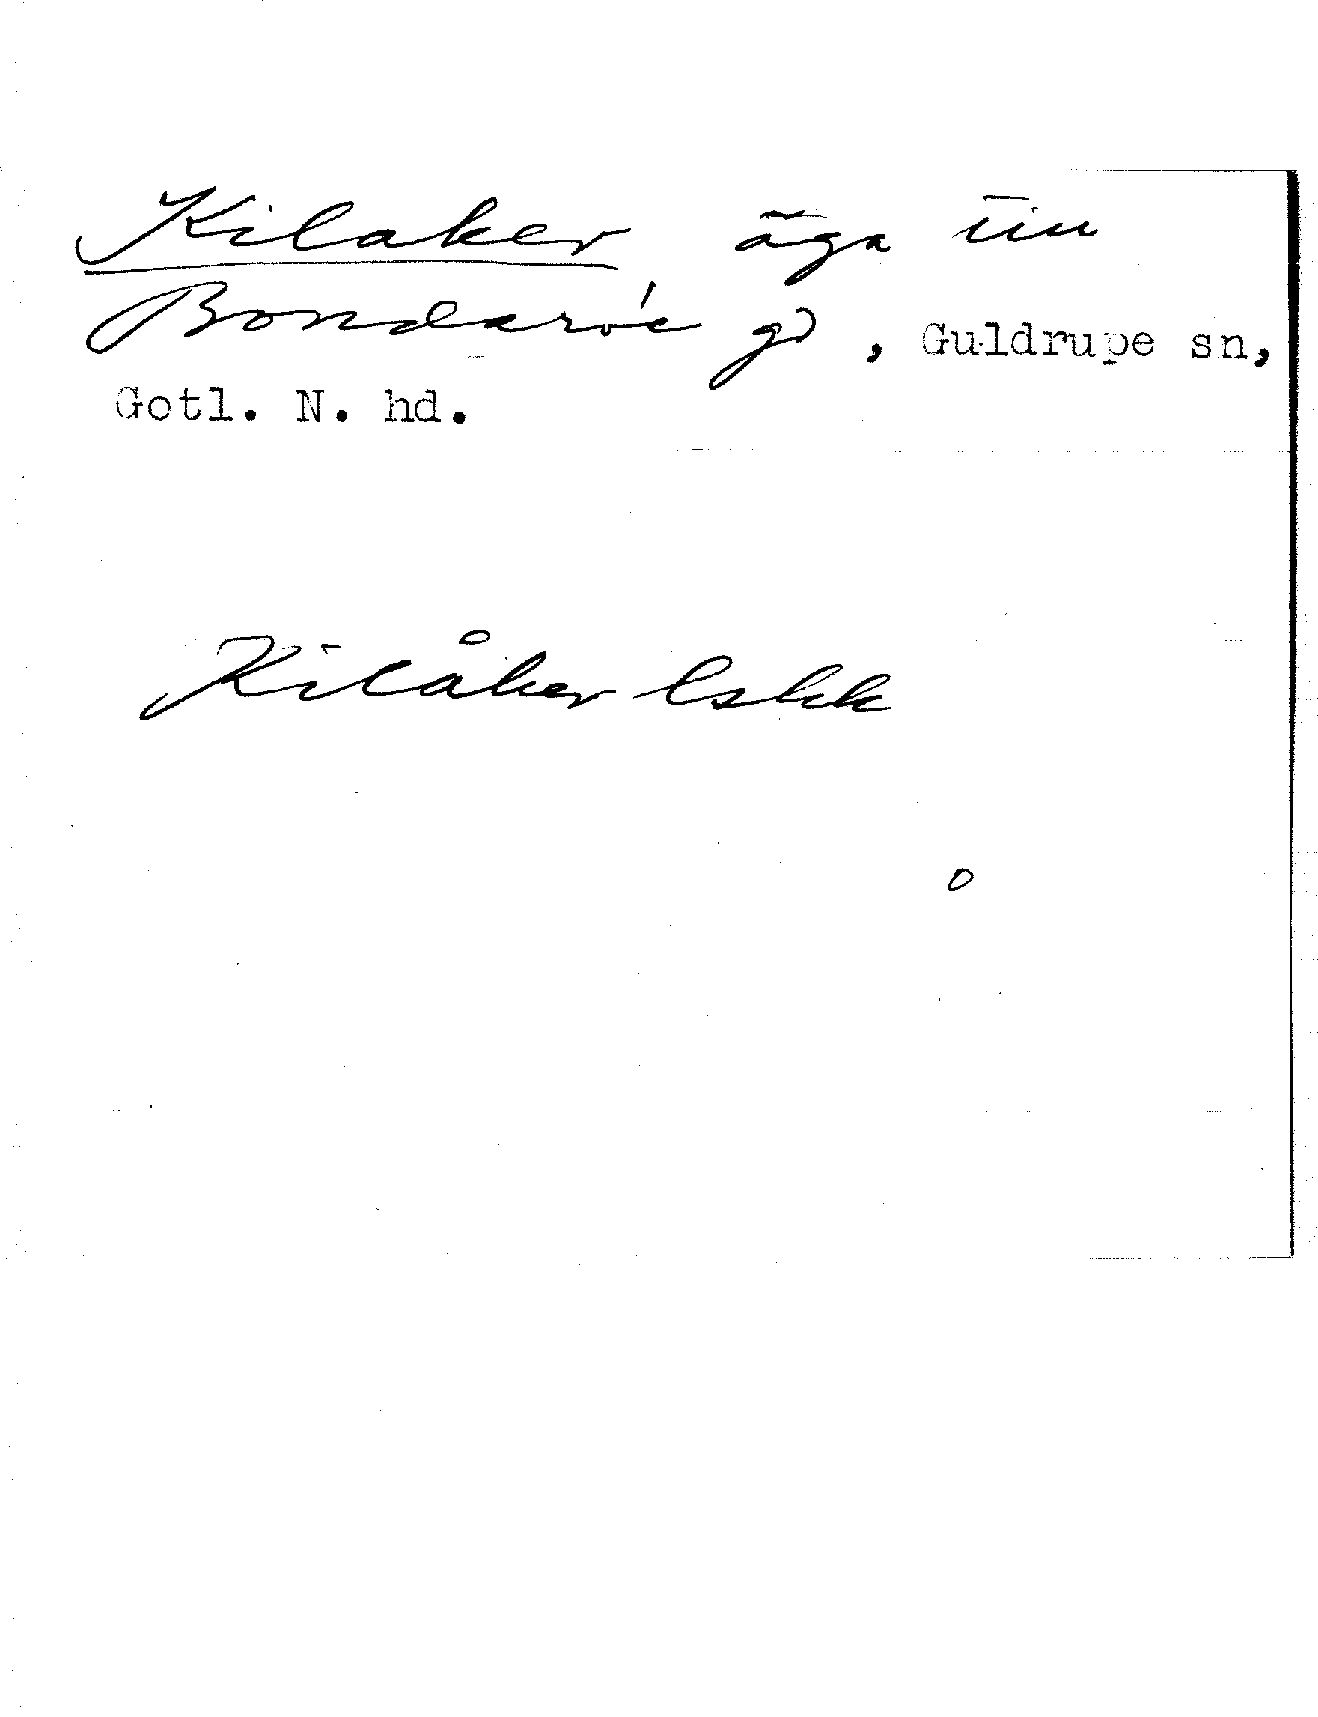 Kilaker äga till
Bondarve gd, Guldrupe sn,
Gotl. N. hd.
Kilåker lskk